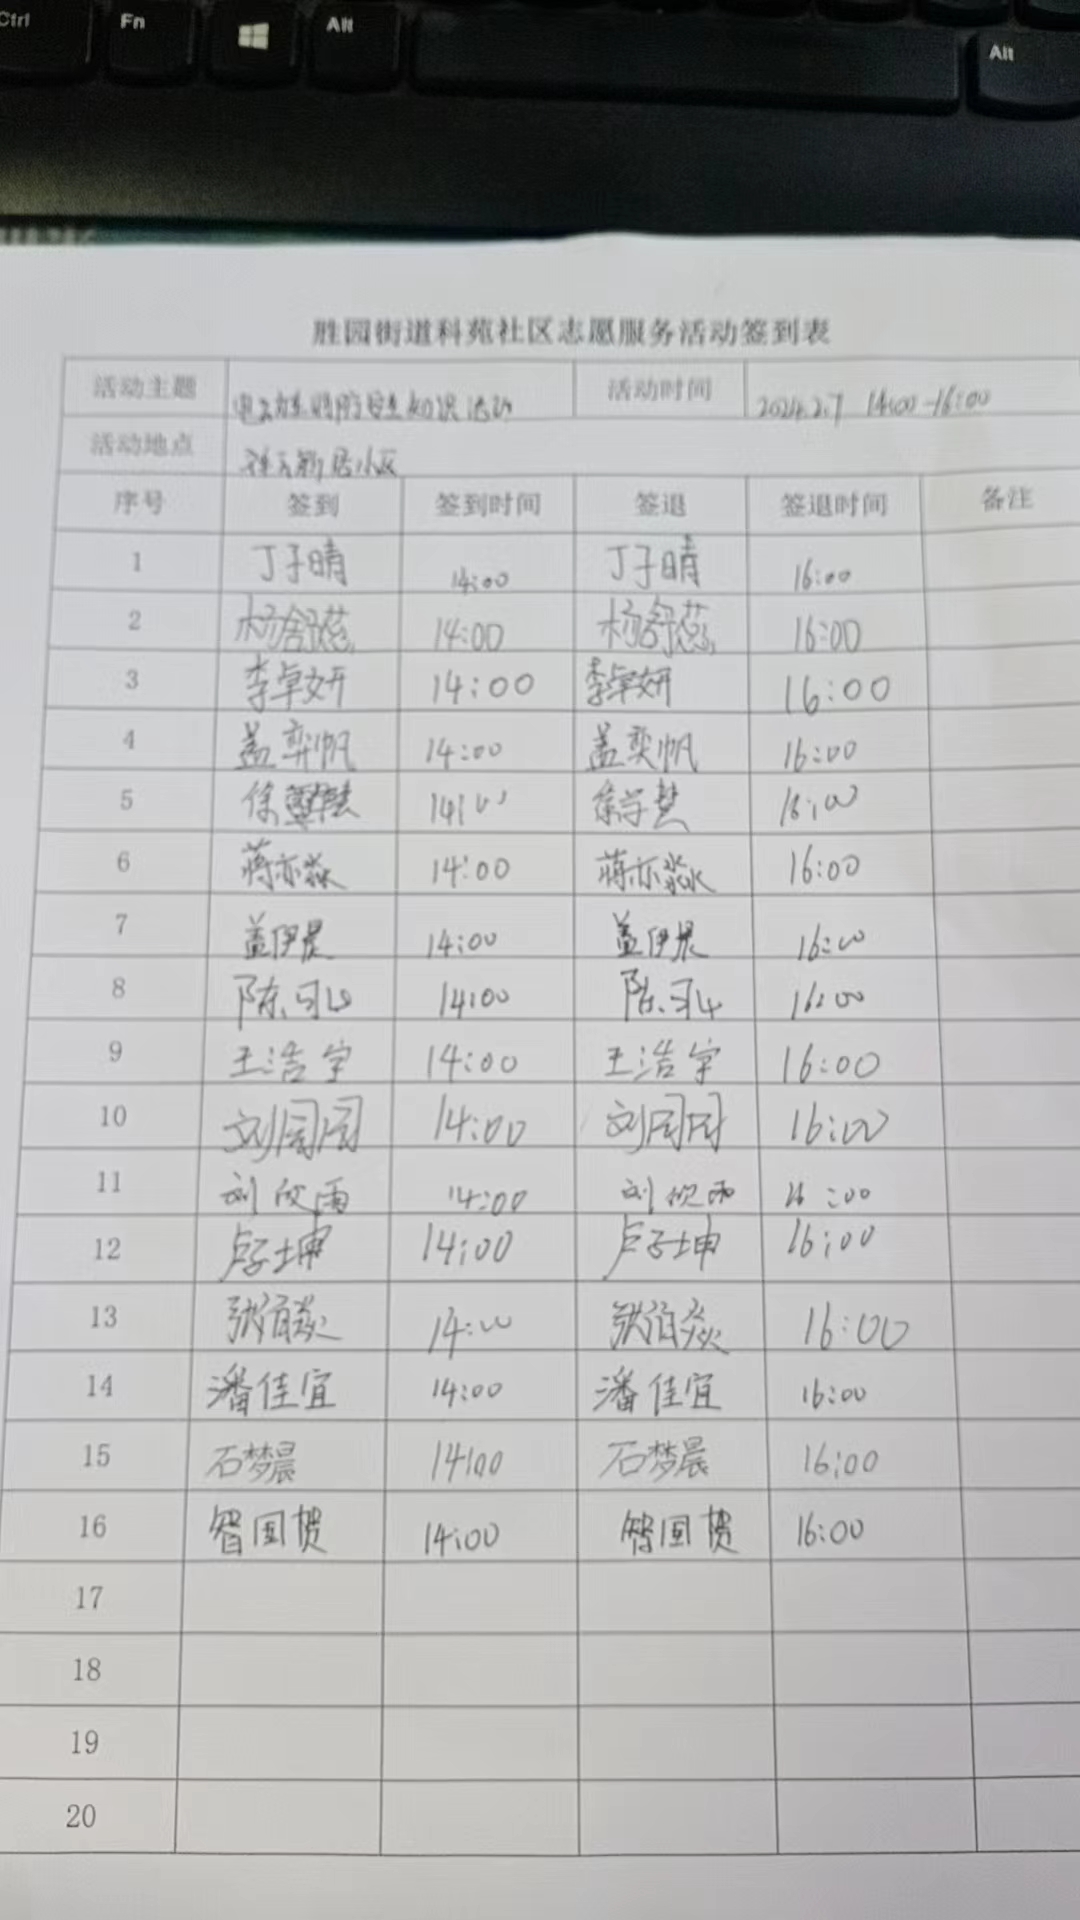 Ctrl Fn Alt Alt
胜园街道科苑社区志愿服务活动签到表
活动主题 电动车消防安全知识活动 活动时间 2024.2.7 14:00-16:00
活动地点 新居小区
序号 签到 签到时间 签退 签退时间 备注
1 丁子晴 14:00 丁子晴 16:00
2 杨舒蕊 14:00 杨舒蕊 16:00
3 李卓妍 14:00 李卓妍 16:00
4 盖奕帆 14:00 盖奕帆 16:00
5 徐 14:00 徐学慧 16:00
6 蒋亦淼 14:00 蒋亦淼 16:00
7 盖伊晨 14:00 盖伊晨 16:00
8 陈 14:00 陈 16:00
9 王浩宇 14:00 王浩宇 16:00
10 刘同同 14:00 刘同同 16:00
11 刘欣雨 14:00 刘欣雨 16:00
12 卢子坤 14:00 卢子坤 16:00
13 张 14:00 张 16:00
14 潘佳宜 14:00 潘佳宜 16:00
15 石梦晨 14:00 石梦晨 16:00
16 智国贤 14:00 智国贤 16:00
17
18
19
20